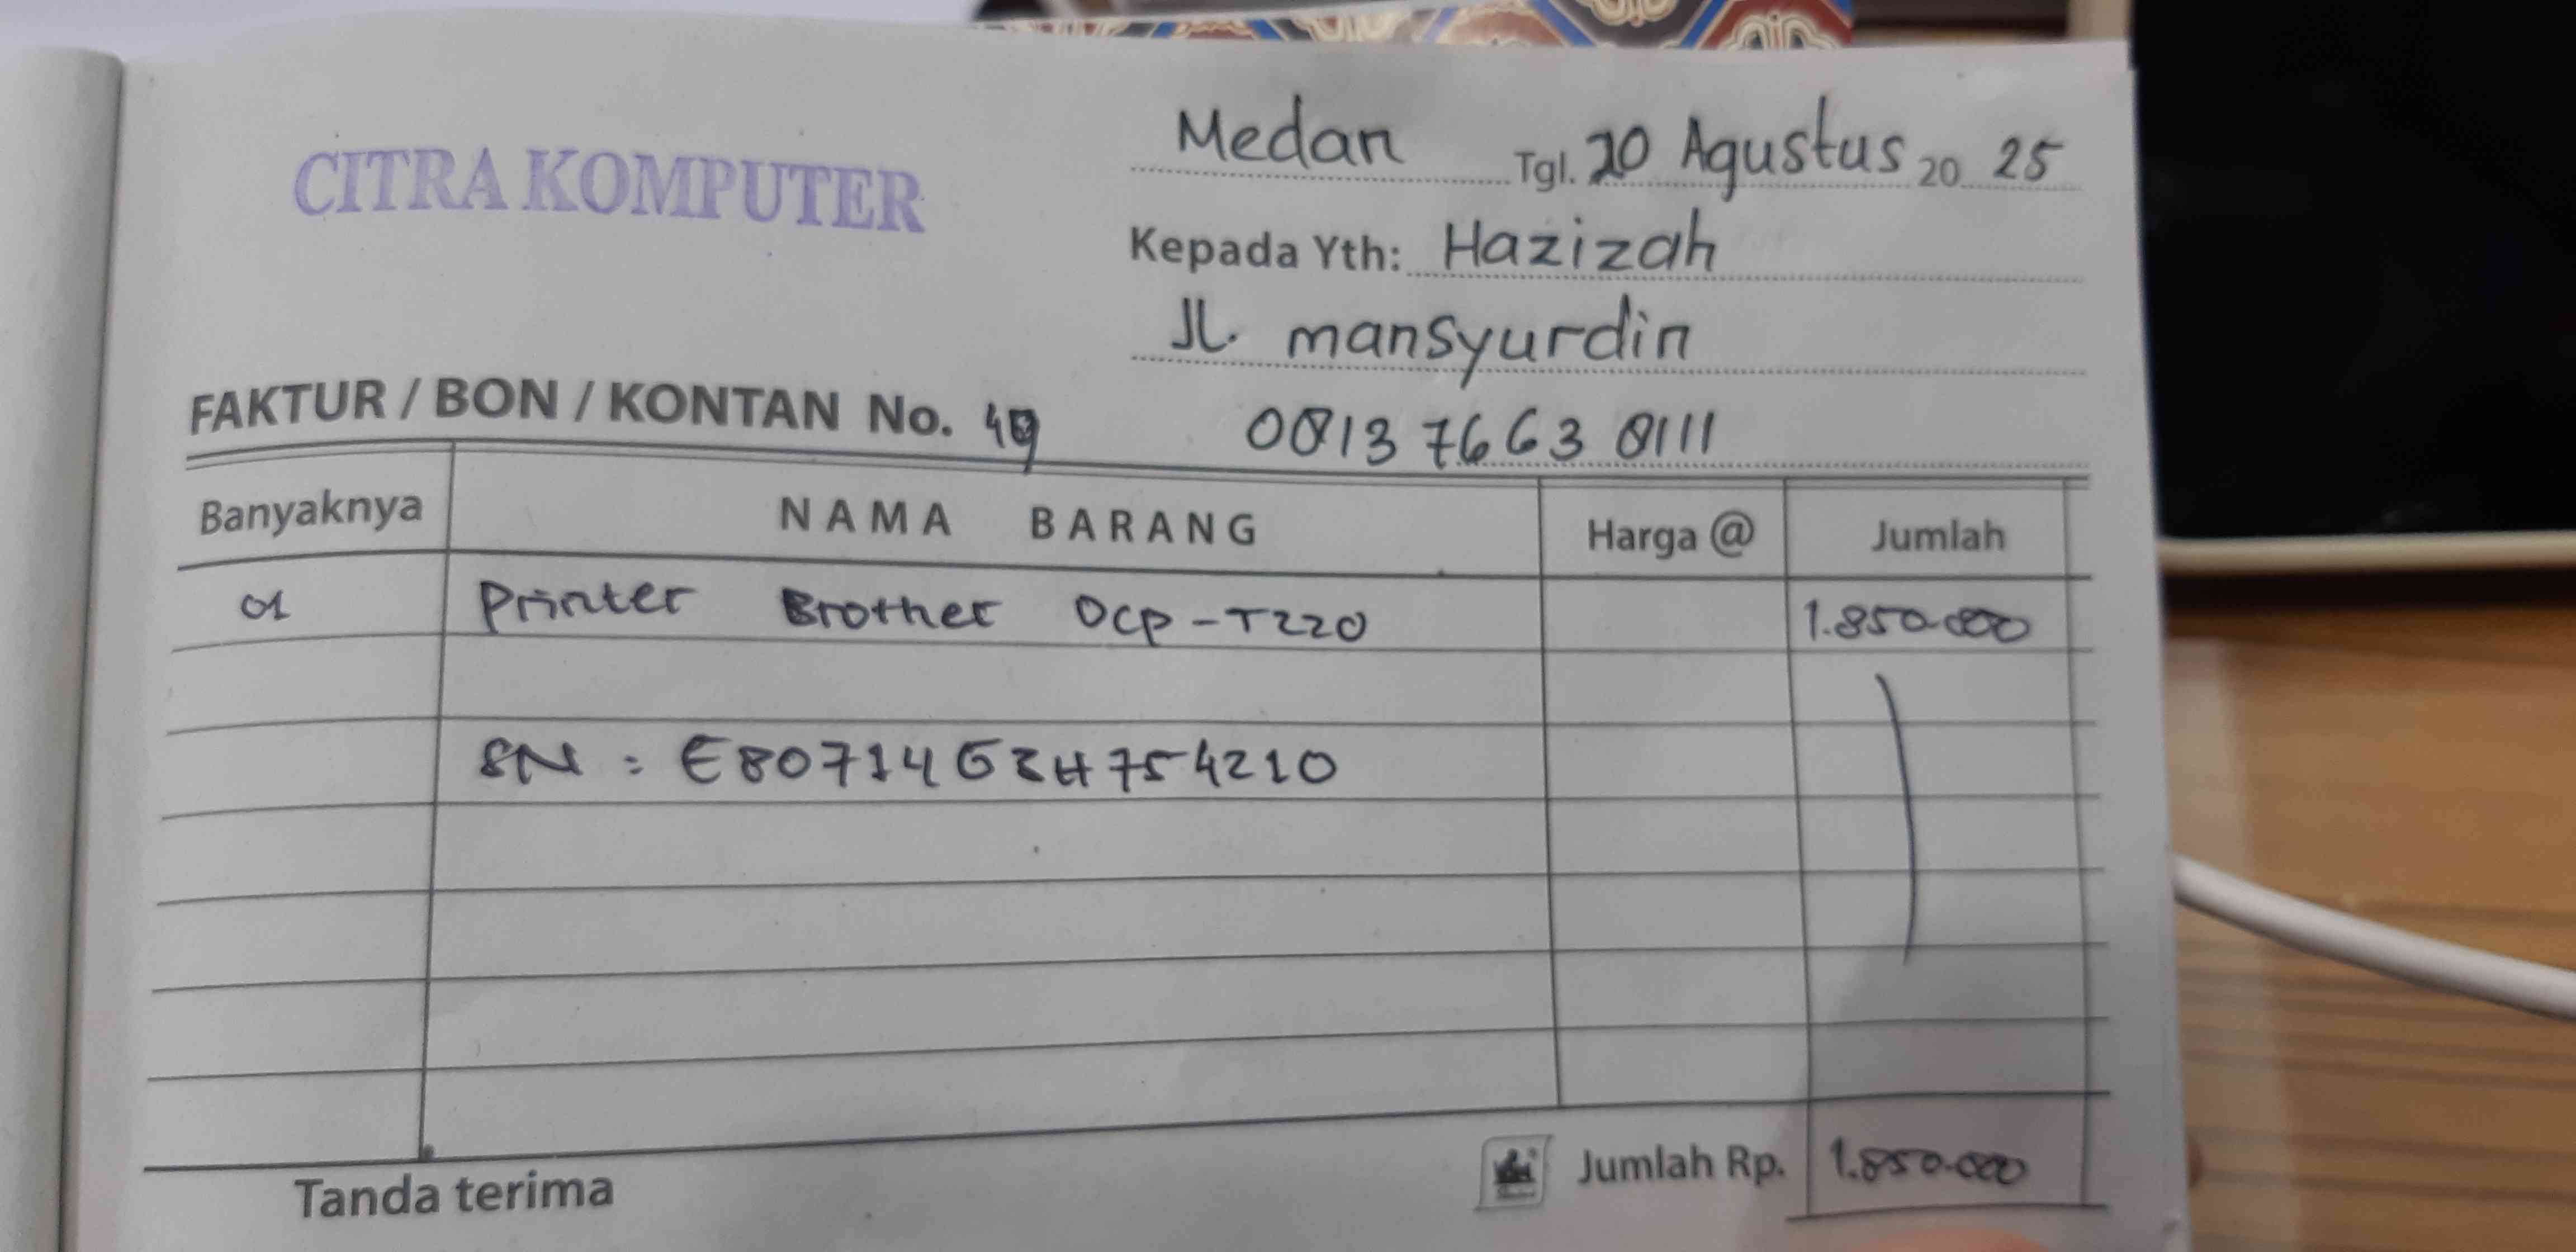 CITRA KOMPUTER
Medan Tgl. 20 Agustus 20 25
Kepada Yth: Hazizah
Jl. mansyurdin
FAKTUR / BON / KONTAN No. 49
0813 7663 8111
Banyaknya NAMA BARANG Harga @ Jumlah
01 Printer Brother DCP-T220 1.850.000
SN : E80714G3H754210
Jumlah Rp. 1.850.000
Tanda terima